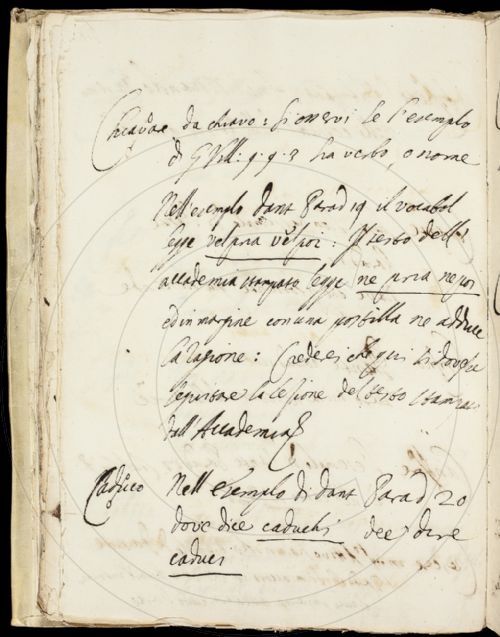 Chiavare da chiavo: si osservi se l'esempio
di G Vill: 9. 9. 3 sia verbo, o nome
Nell'esempio dant Parad 19 il vocabol
legge vel pria vel poi: Il testo dell'
accademia stampato legge ne pria ne poi
ed in margine con una postilla ne adduce
la ragione: Crederei che qui si dovesse
seguitare la lezione del testo stampat
dall'Accademia
Caduco Nell'esempio di dant Parad 20
dove dice caduchi dee dire
caduci